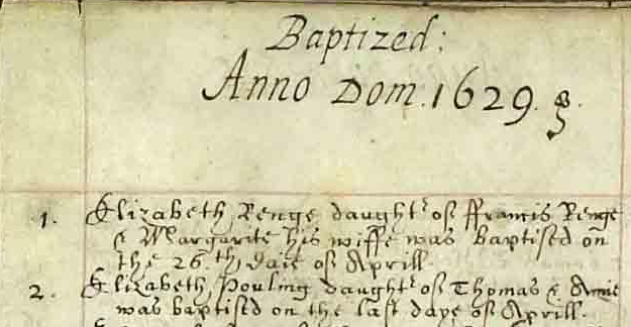 Baptized:
Anno Dom. 1629.
1. Elizabeth Renge daughtr of ffrancis Renge
& Margarite his wiffe was baptised on
the 26th daie of Aprill
2. Elizabeth Pouling daughtr of Thomas & Annie
was baptised on the last daye of Aprill.